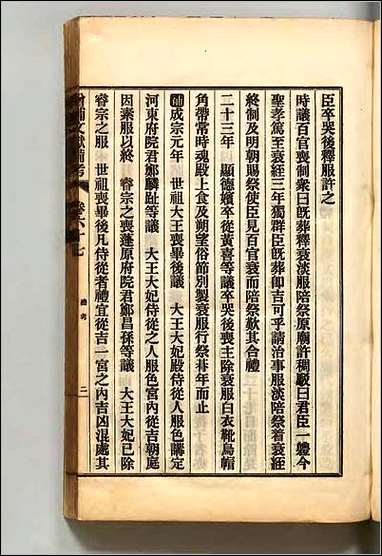 臣卒哭後釋服許之
時議百官喪制衆曰旣葬釋衰淡服陪祭原廟許稠駁曰君臣一體今
聖孝篤至衰絰三年獨群臣旣葬卽吉可乎請治事服淡陪祭着衰絰
終制及明朝賜祭使臣見百官衰而陪祭歎其合禮
二十三年 顯德嬪卒從黃喜等議卒哭後喪主除衰服白衣靴烏帽
角帶常時魂殿上食及朔望俗節別製衰服行祭朞年而止
補成宗元年 世祖大王喪畢後議 大王大妃殿侍從人服色講定
河東府院君鄭麟趾等議 大王大妃侍從之人服色宮內從吉朝庭
因素服以終 睿宗之喪蓬原府院君鄭昌孫等議 大王大妃已除
睿宗之服 世祖喪畢後凡侍從者禮宜從吉一宮之內吉凶混處其
增補文獻備考 卷六十七 禮考 二